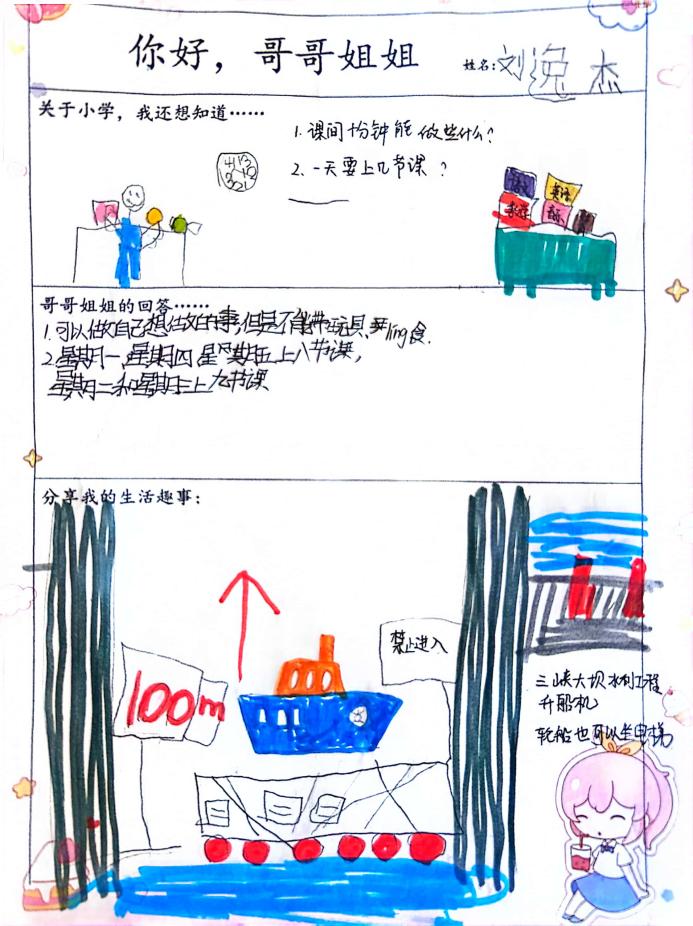 你好，哥哥姐姐
姓名：刘逸杰
关于小学，我还想知道……
1. 课间十分钟能做些什么？
2. 一天要上几节课？
语文
英语
数学
音乐
哥哥姐姐的回答……
1. 可以做自己想做的事，但是不能带玩具、ling食.
2. 星期一、星期四、星期五上八节课，
星期二和星期三上九节课
分享我的生活趣事：
禁止进入
100m
三峡大坝水利工程
升船机
轮船也可以坐电梯